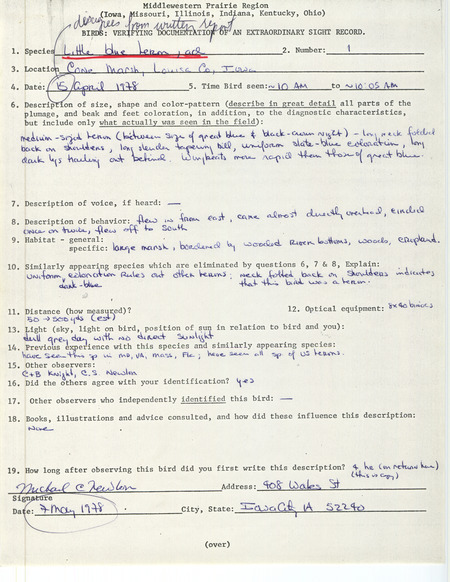 Middlewestern Prairie Region
(Iowa, Missouri, Illinois, Indiana, Kentucky, Ohio)
from written report
BIRDS: VERIFYING DOCUMENTATION OF AN EXTRAORDINARY SIGHT RECORD.
1. Species Little blue heron, ad 2. Number: 1
3. Location Cone Marsh, Louisa Co, Iowa
4. Date: 15 April 1978 5. Time Bird seen: ~10 AM to ~10:05 AM
6. Description of size, shape and color-pattern (describe in great detail all parts of the
plumage, and beak and feet coloration, in addition, to the diagnostic characteristics,
but include only what actually was seen in the field):
medium-sized heron (between size of great blue & black-crown night) - long neck folded
back on shoulders, long slender tapering bill, uniform slate-blue coloration, long
dark legs trailing out behind. Wingbeats more rapid than those of great blue.
7. Description of voice, if heard: —
8. Description of behavior: flew in from east, came almost directly overhead, circled
once or twice, flew off to south
9. Habitat - general:
specific: large marsh, bordered by wooded river bottoms, woods, cropland.
10. Similarly appearing species which are eliminated by questions 6, 7 & 8, Explain:
uniform dark-blue coloration rules out other herons; neck folded back on shoulders indicates
that this bird was a heron.
11. Distance (how measured)? 12. Optical equipment: 8x40 binocs
50 → 500 yds (est)
13. Light (sky, light on bird, position of sun in relation to bird and you):
dull grey day with no direct sunlight
14. Previous experience with this species and similarly appearing species:
have seen this sp in MD, VA, Mass, Fla; have seen all sp of US herons.
15. Other observers:
C+B Knight, C.S. Newlon
16. Did the others agree with your identification? yes
17. Other observers who independently identified this bird: —
18. Books, illustrations and advice consulted, and how did these influence this description:
None
19. How long after observing this bird did you first write this description? 4 hr (on return home)
(this is copy)
Michael C Newlon Address: 408 Wales St
Signature
Date: 7 May 1978 City, State: Iowa City IA 52240
(over)